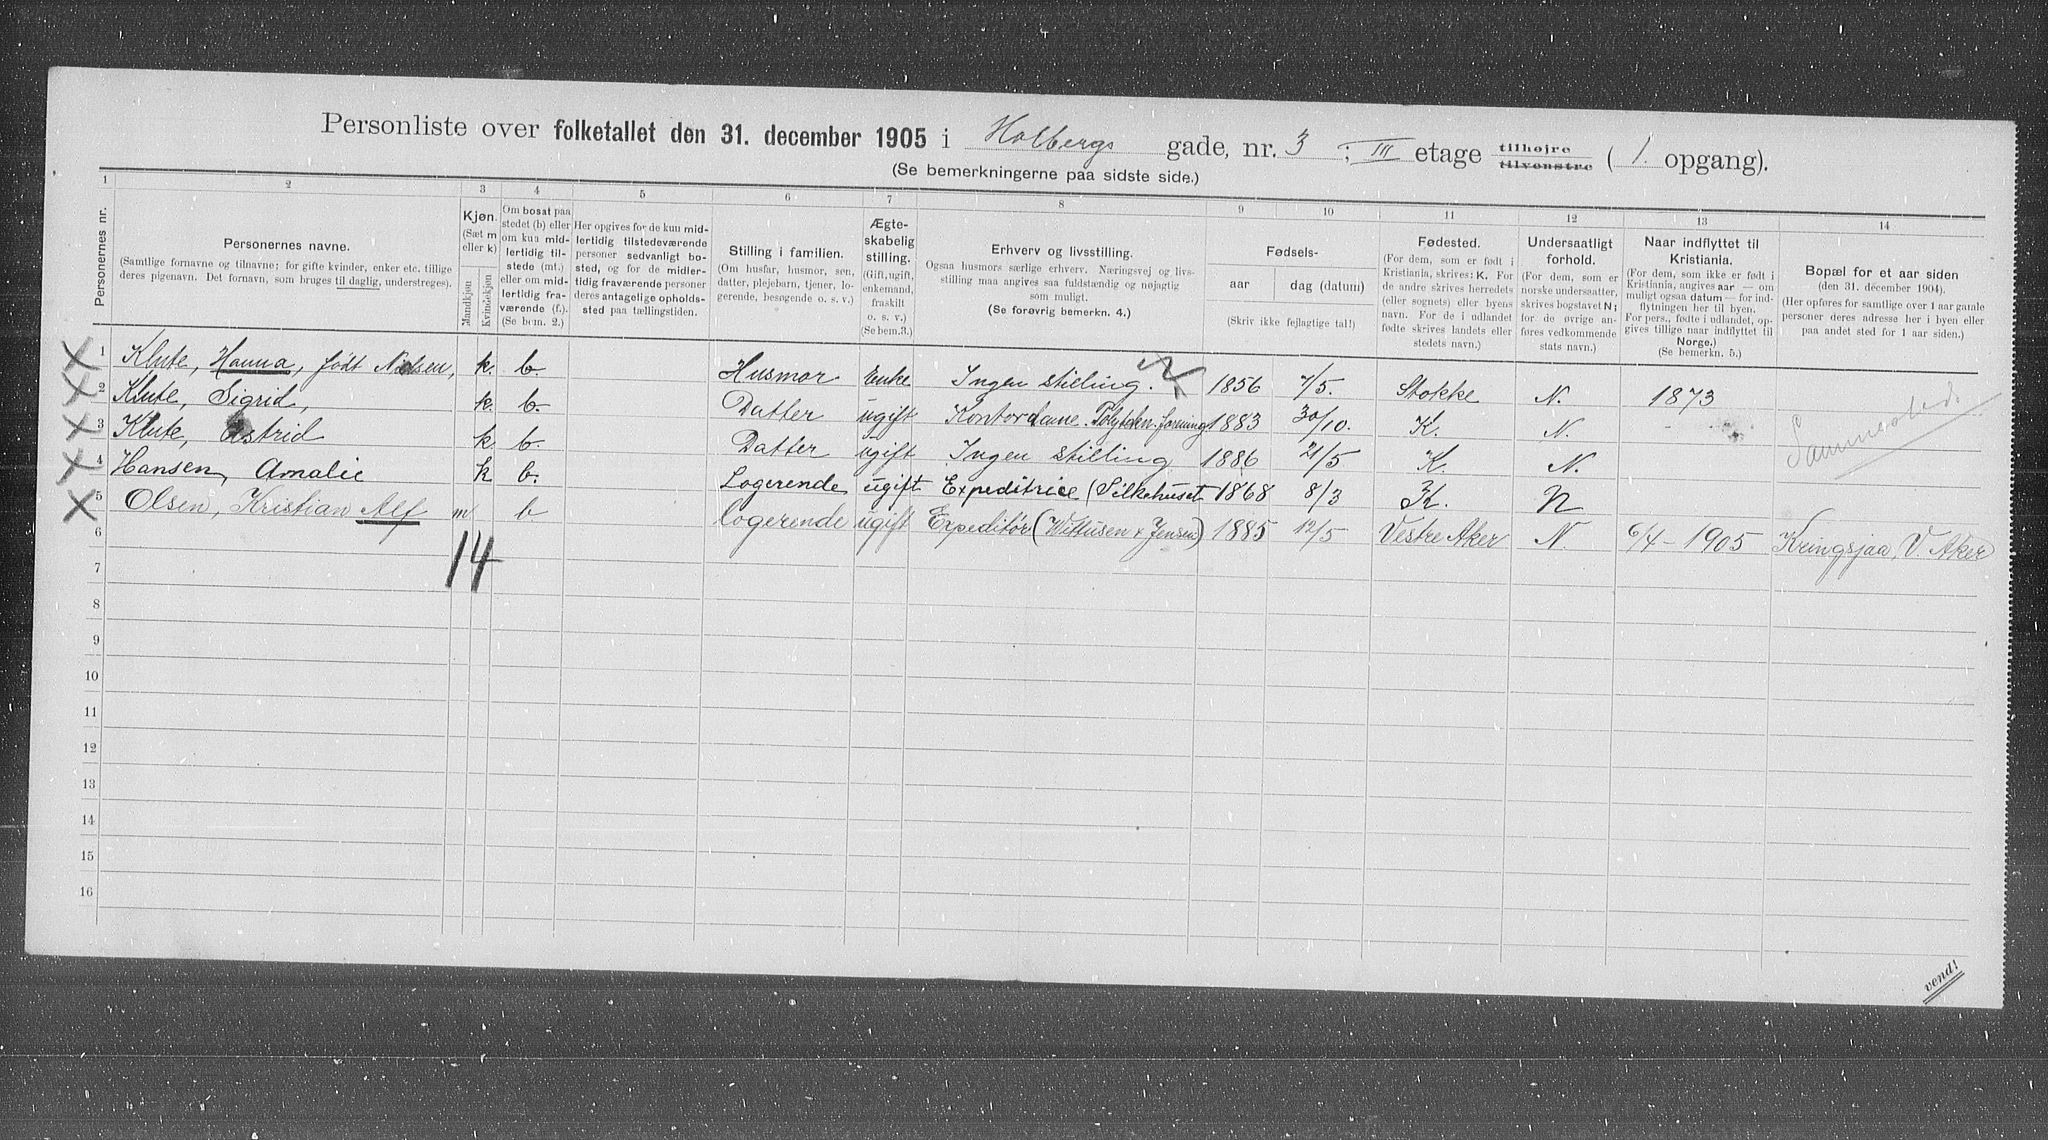 Personliste over folketallet den 31. december 1905 i Holbergs gade, nr. 3 ; III etage tilhøjre tilvenstre ( 1. opgang).
(Se bemerkningerne paa sidste side.)
1 2 3 4 5 6 7 8 9 10 11 12 13 14
Personernes nr.
Personernes navne.
(Samtlige fornavne og tilnavne; for gifte kvinder, enker etc. tillige
deres pigenavn. Det fornavn, som bruges til daglig, understreges).
Kjøn.
(Sæt m
eller k)
Mandkjøn
Kvindekjøn
Om bosat paa
stedet (b) eller
om kun mid-
lertidig til-
stede (mt.)
eller om mid-
lertidig fra-
værende (f.).
(Se bem. 2.)
Her opgives for de kun mid-
lertidig tilstedeværende
personer sedvanligt bo-
sted, og for de midler-
tidig fraværende personer
deres antagelige opholds-
sted paa tællingstiden.
Stilling i familien.
(Om husfar, husmor, søn,
datter, plejebarn, tjener, lo-
gerende, besøgende o. s. v.)
Ægte-
skabelig
stilling.
(Gift, ugift,
enkemand,
fraskilt
o. s. v.)
(Se bem.3.)
Erhverv og livsstilling.
Ogsaa husmors særlige erhverv. Næringsvej og livs-
stilling maa angives saa fuldstændig og nøjagtig
som muligt.
(Se forøvrig bemerkn. 4.)
Fødsels-
aar
dag (datum)
(Skriv ikke fejlagtige tal!)
Fødested.
(For dem, som er født i
Kristiania, skrives: K. For
de andre skrives herredets
(eller sognets) eller byens
navn. For de i udlandet
fødte skrives landets eller
stedets navn.)
Undersaatligt
forhold.
(For dem, som er
norske undersaatter,
skrives bogstavet N;
for de øvrige an-
føres vedkommende
stats navn.)
Naar indflyttet til
Kristiania.
(For dem, som ikke er født i
Kristiania, angives aar — om
muligt ogsaa datum — for ind-
flytningen her til byen.
For pers., fødte i udlandet, op-
gives tillige naar indflyttet til
Norge.)
(Se bemerkn. 5.)
Bopæl for et aar siden
(den 31. december 1904).
(Her opføres for samtlige over 1 aar gamle
personer deres adresse her i byen eller
paa andet sted for 1 aar siden.)
1 Klute, Hanna, født Nilsen, k. b. Husmor Enke Ingen stilling. 1856 7/5. Stokke N. 1873
2 Klute, Sigrid, k. b. Datter ugift Kontordame. Polytekn. forening 1883 30/10. K. N.
3 Klute, Astrid k b. Datter ugift Ingen stilling 1886 21/5 K. N. Sammested.
4 Hansen, Amalie k b. Logerende ugift Expeditrice (Silkehuset 1868 8/3 K. N
5 Olsen, Kristian Alf m b logerende ugift Expeditør (Wittusen & Jensen) 1885 12/5 Vestre Aker N. 6/4 - 1905 Kringsjaa, V. Aker
6
14
7
8
9
10
11
12
13
14
15
16
vend!